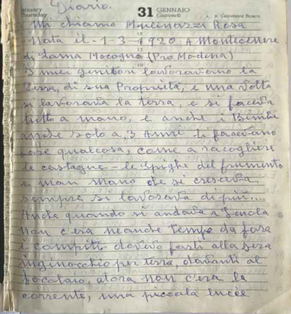 Diario.
31 GENNAIO
Mi chiamo Rosa
Nata il - 1 - 3 - 1920 A Montecenere
di Lama Mocogno (Pro Modena)
I miei genitori lavoravano la
terra, di sua Proprietà, e una volta
si lavorava la terra, e si faceva
tutto a mano, e anche i Bimbi
anche solo a 3 Anni le facevano
fare qualcosa, come a racogliere
le castagne - le spighe del frumento
e man mano che si cresceva
sempre si lavorava di più...
Anche quando si andava a Squola
non c'era neanche tempo da fare
i compiti dovevo farli alla sera
inginocchio per terra, davanti al
focolaio, alora non c'era la
corrente, una piccola luce